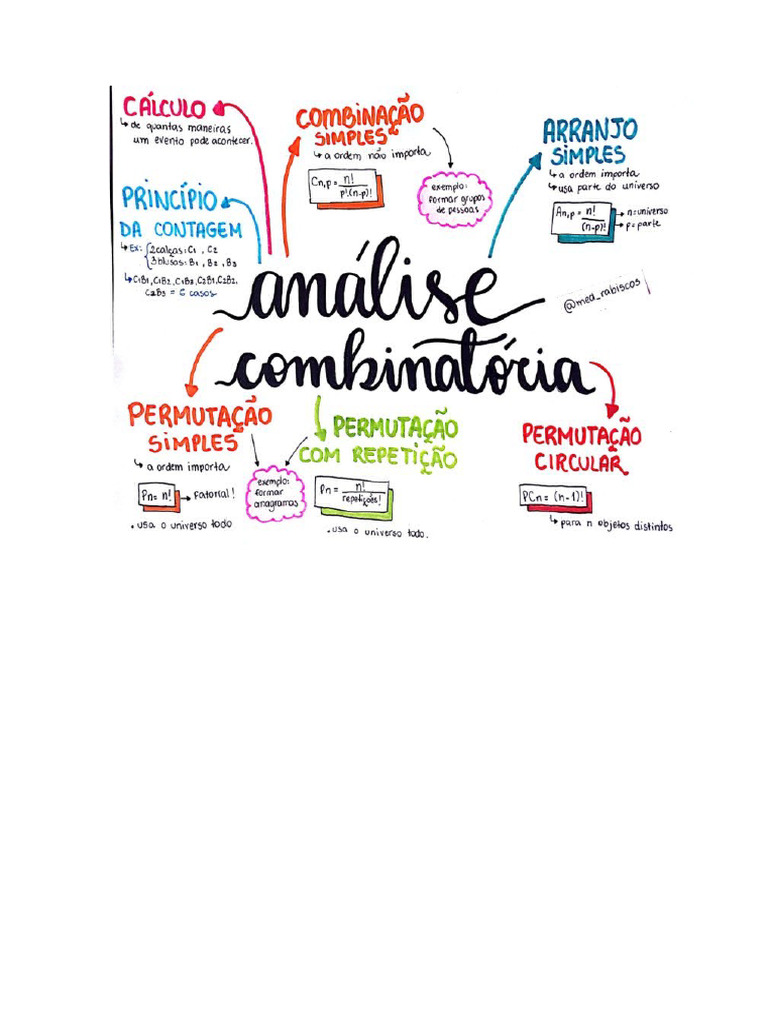 CÁLCULO
↳ de quantas maneiras
um evento pode acontecer.
PRINCÍPIO
DA CONTAGEM
↳ Ex: { 2 calças: C1 , C2
3 blusas: B1 , B2 , B3
↳ C1B1, C1B2, C1B3, C2B1, C2B2,
C2B3 = 6 casos
COMBINAÇÃO
SIMPLES
↳ a ordem não importa
Cn,p = n!
p!(n-p)!
exemplo:
formar grupos
de pessoas
ARRANJO
SIMPLES
↳ a ordem importa
↳ usa parte do universo
An,p = n!
(n-p)!
→ n = universo
→ p = parte
análise
combinatória
@mea_rabiscos
PERMUTAÇÃO
SIMPLES
↳ a ordem importa
Pn = n! → fatorial!
• usa o universo todo
exemplo:
formar
anagramas
PERMUTAÇÃO
COM REPETIÇÃO
Pn = n!
repetições!
• usa o universo todo.
PERMUTAÇÃO
CIRCULAR
PCn = (n-1)!
↳ para n objetos distintos